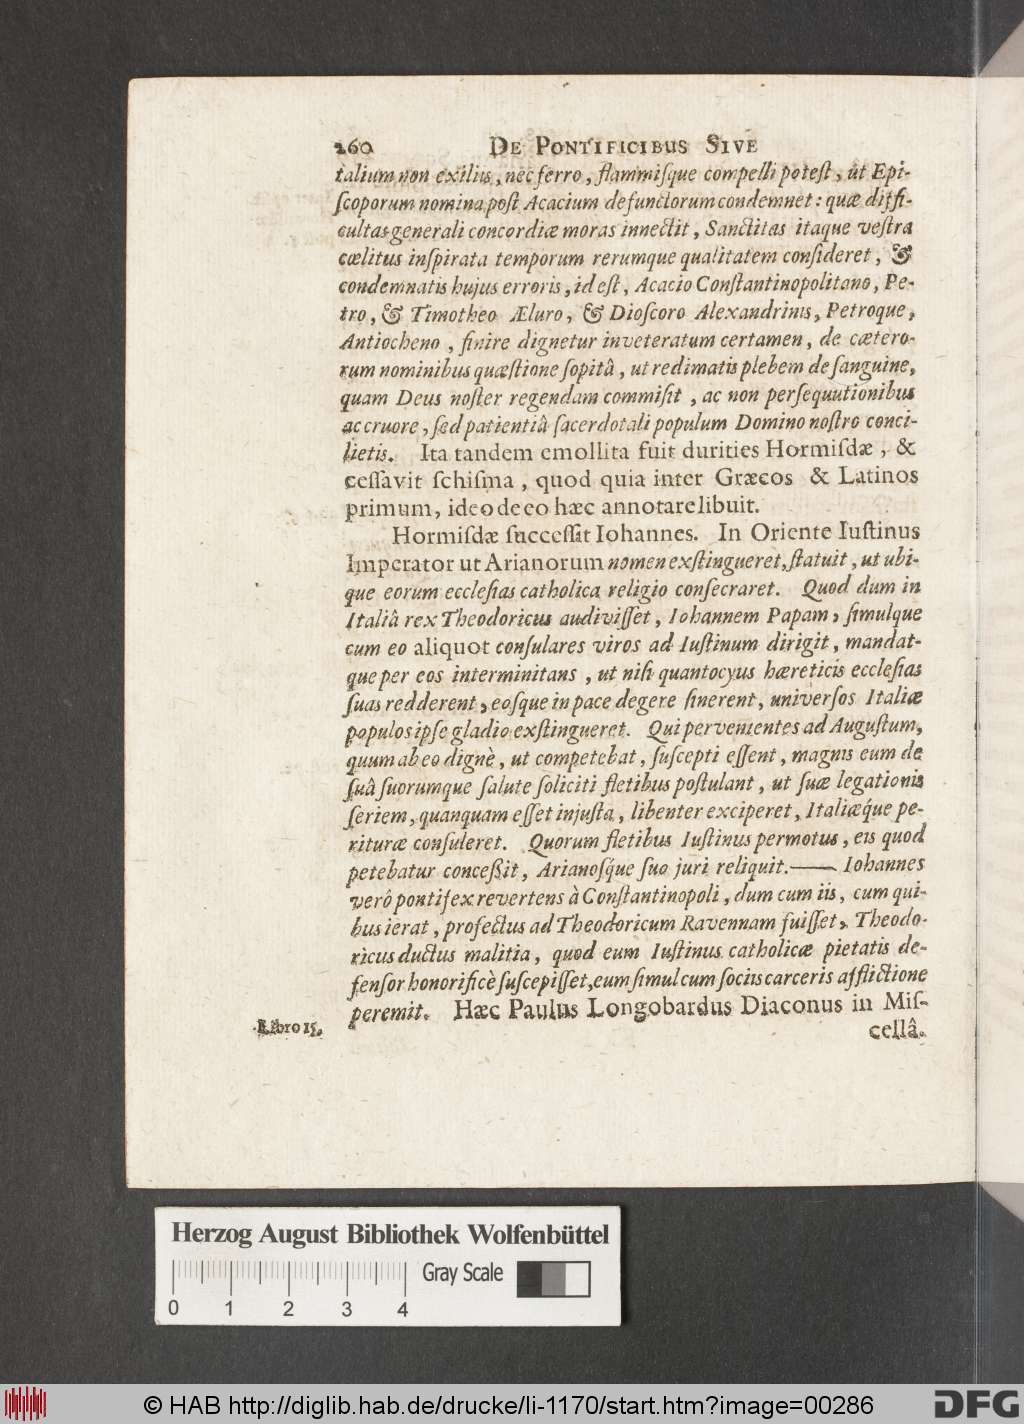 260 DE PONTIFICIBUS SIVE
talium non exiliis, nec ferro, flammiſque compelli poteſt, ut Epi-
ſcoporum nomina poſt Acacium defunctorum condemnet: quæ diffi-
cultas generali concordiæ moras innectit, Sanctitas itaque veſtra
cœlitus inſpirata temporum rerumque qualitatem conſideret, &
condemnatis hujus erroris, id eſt, Acacio Conſtantinopolitano, Pe-
tro, & Timotheo Æluro, & Dioſcoro Alexandrinis, Petroque,
Antiocheno, finire dignetur inveteratum certamen, de cætero-
rum nominibus quæſtione ſopitâ, ut redimatis plebem de ſanguine,
quam Deus noſter regendam commiſit, ac non perſequutionibus
ac cruore, ſed patientiâ ſacerdotali populum Domino noſtro conci-
lietis. Ita tandem emollita fuit durities Hormiſdæ, &
ceſſavit ſchiſma, quod quia inter Græcos & Latinos
primum, ideo de eo hæc annotare libuit.
Hormiſdæ ſucceſſit Iohannes. In Oriente Iuſtinus
Imperator ut Arianorum nomen exſtingueret, ſtatuit, ut ubi-
que eorum eccleſias catholica religio conſecraret. Quod dum in
Italiâ rex Theodoricus audiviſſet, Iohannem Papam, ſimulque
cum eo aliquot conſulares viros ad Iuſtinum dirigit, mandat-
que per eos interminitans, ut niſi quantocyus hæreticis eccleſias
ſuas redderent, eoſque in pace degere ſinerent, univerſos Italiæ
populos ipſe gladio exſtingueret. Qui pervenientes ad Auguſtum,
quum ab eo dignè, ut competebat, ſuſcepti eſſent, magnis eum de
ſuâ ſuorumque ſalute ſoliciti fletibus poſtulant, ut ſuæ legationis
ſeriem, quanquam eſſet injuſta, libenter exciperet, Italiæq́ue pe-
rituræ conſuleret. Quorum fletibus Iuſtinus permotus, eis quod
petebatur conceßit, Arianoſq́ue ſuo juri reliquit.—— Iohannes
verò pontifex revertens à Conſtantinopoli, dum cum iis, cum qui-
bus ierat, profectus ad Theodoricum Ravennam fuiſſet, Theodo-
ricus ductus malitia, quod eum Iuſtinus catholicæ pietatis de-
fenſor honorificè ſuſcepiſſet, eum ſimul cum ſociis carceris afflictione
peremit. Hæc Paulus Longobardus Diaconus in Miſ-
Libro 15.
cellâ.
Herzog August Bibliothek Wolfenbüttel
Gray Scale
0 1 2 3 4
© HAB http://diglib.hab.de/drucke/li-1170/start.htm?image=00286
DFG